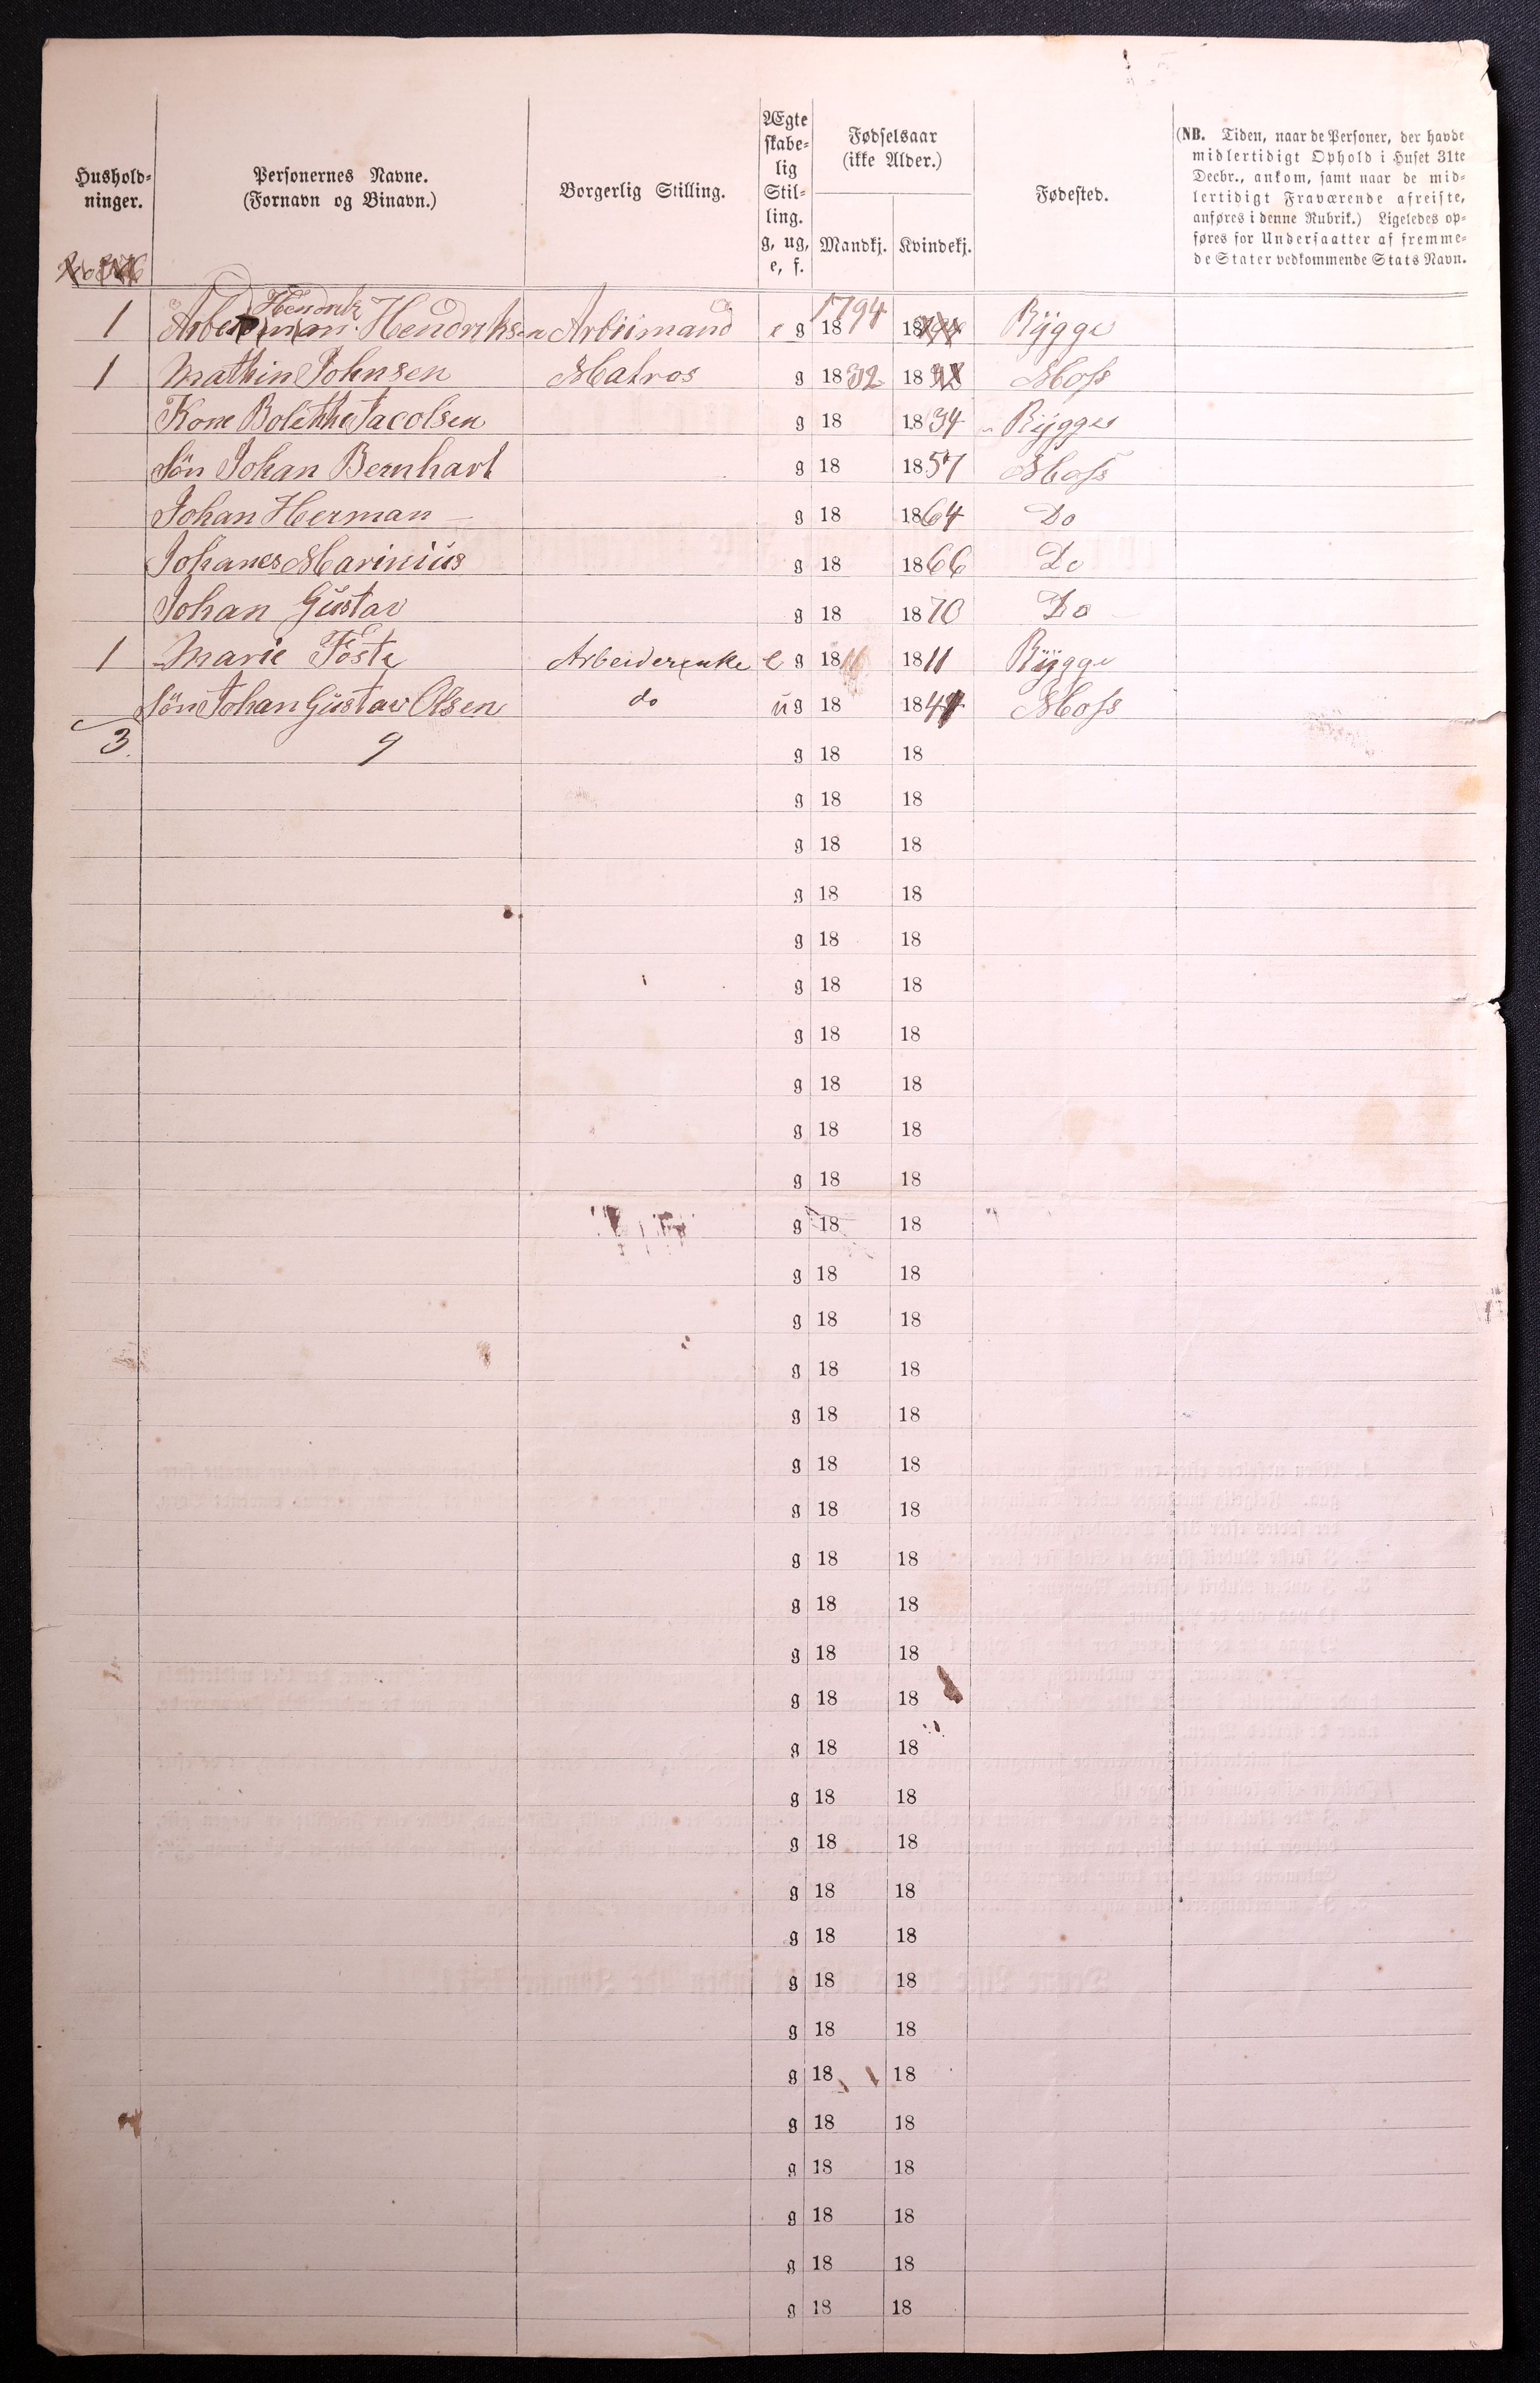 Hushold-
ninger.
Personernes Navne.
(Fornavn og Binavn.)
Borgerlig Stilling.
Ægte
skabe-
lig
Stil-
ling.
g, ug,
e, f.
Fødselsaar
(ikke Alder.)
Mandkj. Kvindekj.
Fødested.
(NB. Tiden, naar de Personer, der havde
midlertidigt Ophold i Huset 31te
Decbr., ankom, samt naar de mid-
lertidigt Fraværende afreiste,
anføres i denne Rubrik.) Ligeledes op-
føres for Undersaatter af fremme-
de Stater vedkommende Stats Navn.
Hendrik
1 Hendriksen Arbiimand e g 18 1794 18 Rÿgge
1 Mathin Johnsen Matros g 1832 18 Moss
Kone Bolethe Jacolsen g 18 1834 Rÿgge
Sön Johan Bernhart g 18 1857 Moss
Johan Herman g 18 1864 Do
Johanes Marinius g 18 1866 Do
Johan Gustav g 18 1870 Do
1 Marie Foste Arbeiderenke e g 1811 1811 Rÿgge
Sön Johan Gustav Olsen do ug 18 184 Moss
3. 9 g 18 18
g 18 18
g 18 18
g 18 18
g 18 18
g 18 18
g 18 18
g 18 18
g 18 18
g 18 18
g 18 18
g 18 18
g 18 18
g 18 18
g 18 18
g 18 18
g 18 18
g 18 18
g 18 18
g 18 18
g 18 18
g 18 18
g 18 18
g 18 18
g 18 18
g 18 18
g 18 18
g 18 18
g 18 18
g 18 18
g 18 18
g 18 18
g 18 18
g 18 18